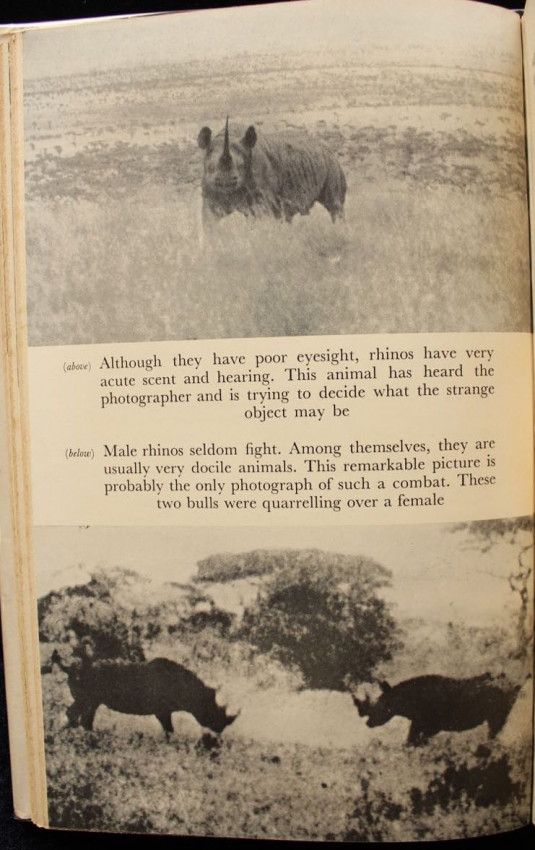 (above) Although they have poor eyesight, rhinos have very
acute scent and hearing. This animal has heard the
photographer and is trying to decide what the strange
object may be
(below) Male rhinos seldom fight. Among themselves, they are
usually very docile animals. This remarkable picture is
probably the only photograph of such a combat. These
two bulls were quarrelling over a female